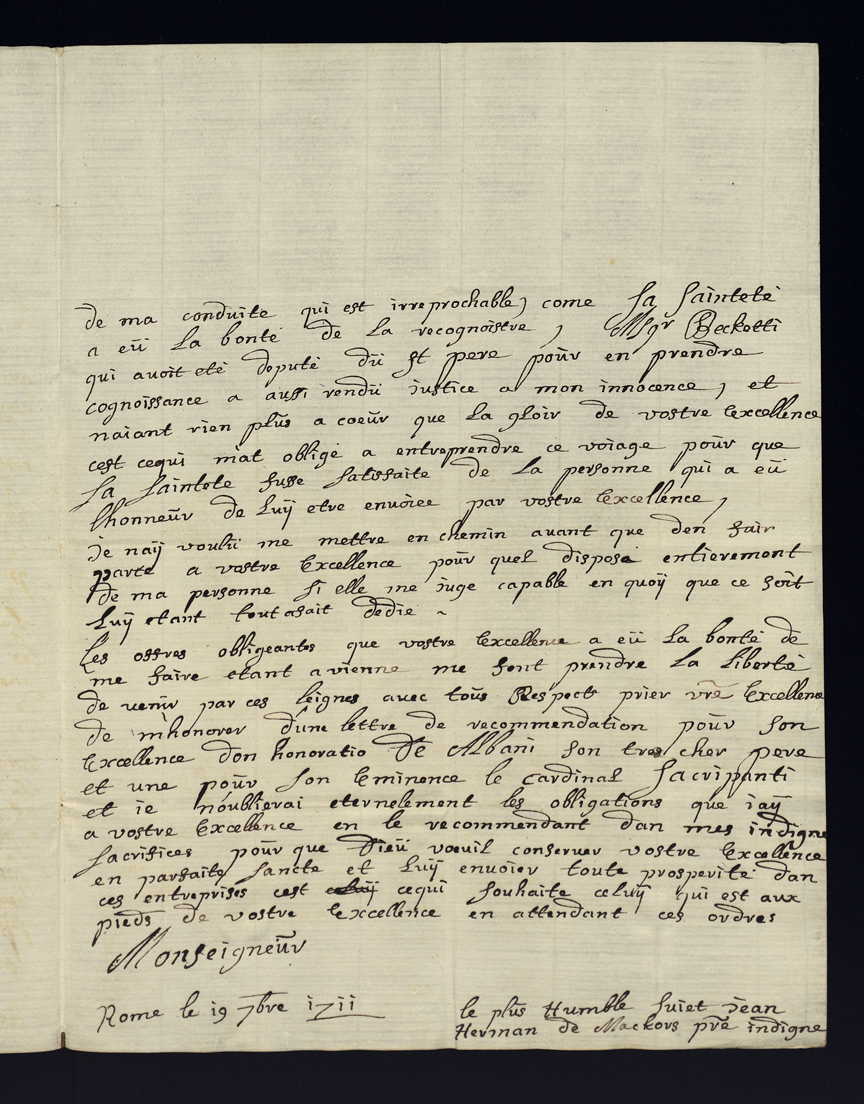 de ma conduite qui est irreprochable, come sa sainteté
a eü la bonté de la recognoistre, Msgr Beckotti
qui avoit eté deputé dü st pere poür en prendre
cognoissance a aussi rendü justice a mon innocence, et
naiant rien plüs a coeür que la gloir de vostre Excellence
cest cequi m'at obligé a entreprendre ce voiage poür que
sa sainteté fusse satisfaite de la personne qui a eü
lhonneür de Luÿ etre envoiee par vostre Excellence,
ie naÿ voulü me mettre en chemin avant que den fair
parte a vostre Excellence poür quel dispose entierement
de ma personne si elle me iuge capable en quoÿ que ce soit
Luÿ etant toutafait dedie ~
les offres obligeantes que vostre Excellence a eü la bonté de
me faire etant a vienne me font prendre la liberté
de venir par ces leignes avec toüs Respects prier vrē Excellence
de m'honorer düne lettre de recommendation poür son
Excellence don honoratio de Albani son tres cher pere
et une poür son Eminence le cardinal Sacripanti
et ie n'oublierai eternelement les obligations que iaÿ
a vostre Excellence en le recommendant dan mes indigne
sacrifices poür que Dieü vœuil conserver vostre Excellence
en parfaite sancte et Luÿ envoier toute prosperité dan
ces entreprises cest cequi souhaite celuÿ qui est aux
pieds de vostre Excellence en attendant ces ordres
Monseigneür
Rome le 19 7bre 1711
le plüs Humble suiet jean
Herman de Mackors prē indigne